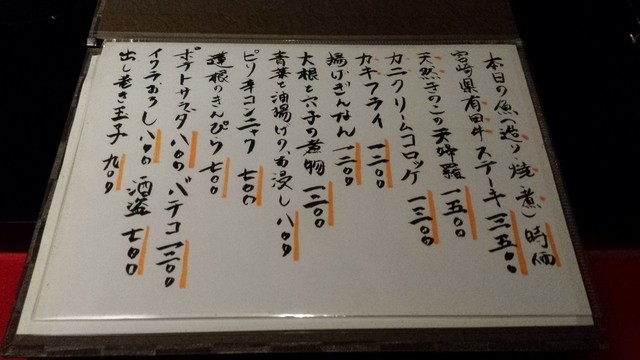 本日の魚(造り・焼・煮) 時価
宮崎県有田牛ステーキ 三三五〇〇
天然きのこの天婦羅 一五〇〇
カニクリームコロッケ 一三〇〇
カキフライ 一二〇〇
揚げぎんなん 一二〇〇
大根と穴子の煮物 一三〇〇
青菜と油揚げのお浸し 八〇〇
ピリ辛コンニャク 七〇〇
蓮根のきんぴら 七〇〇
ポテトサラダ 八〇〇 バテコ 一三〇〇
イクラおろし 八〇〇 酒盗 七〇〇
出し巻き玉子 九〇〇